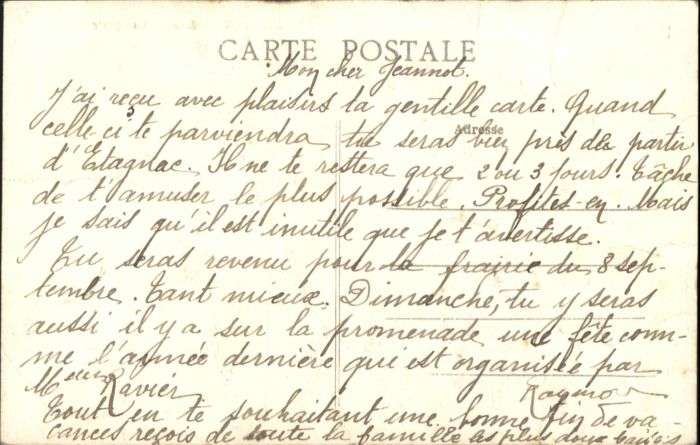 CARTE POSTALE
Mon cher Jeannot.
J'ai reçu avec plaisirs ta gentille carte. Quand
celle ci te parviendra tu seras bien près de partir
Adresse
d'Etagnac. Il ne te restera que 2 ou 3 jours. Tâche
de t'amuser le plus possible. Profites-en. Mais
je sais qu'il est inutile que je t'avertisse.
Tu seras revenu pour la frairie du 8 sep-
tembre. Tant mieux. Dimanche, tu y seras
aussi il y a sur la promenade une fête com-
me l'année dernière qui est organisée par
Ravier
Tout en te souhaitant une bonne fin de va
cances reçois de toute la famille les plus doux